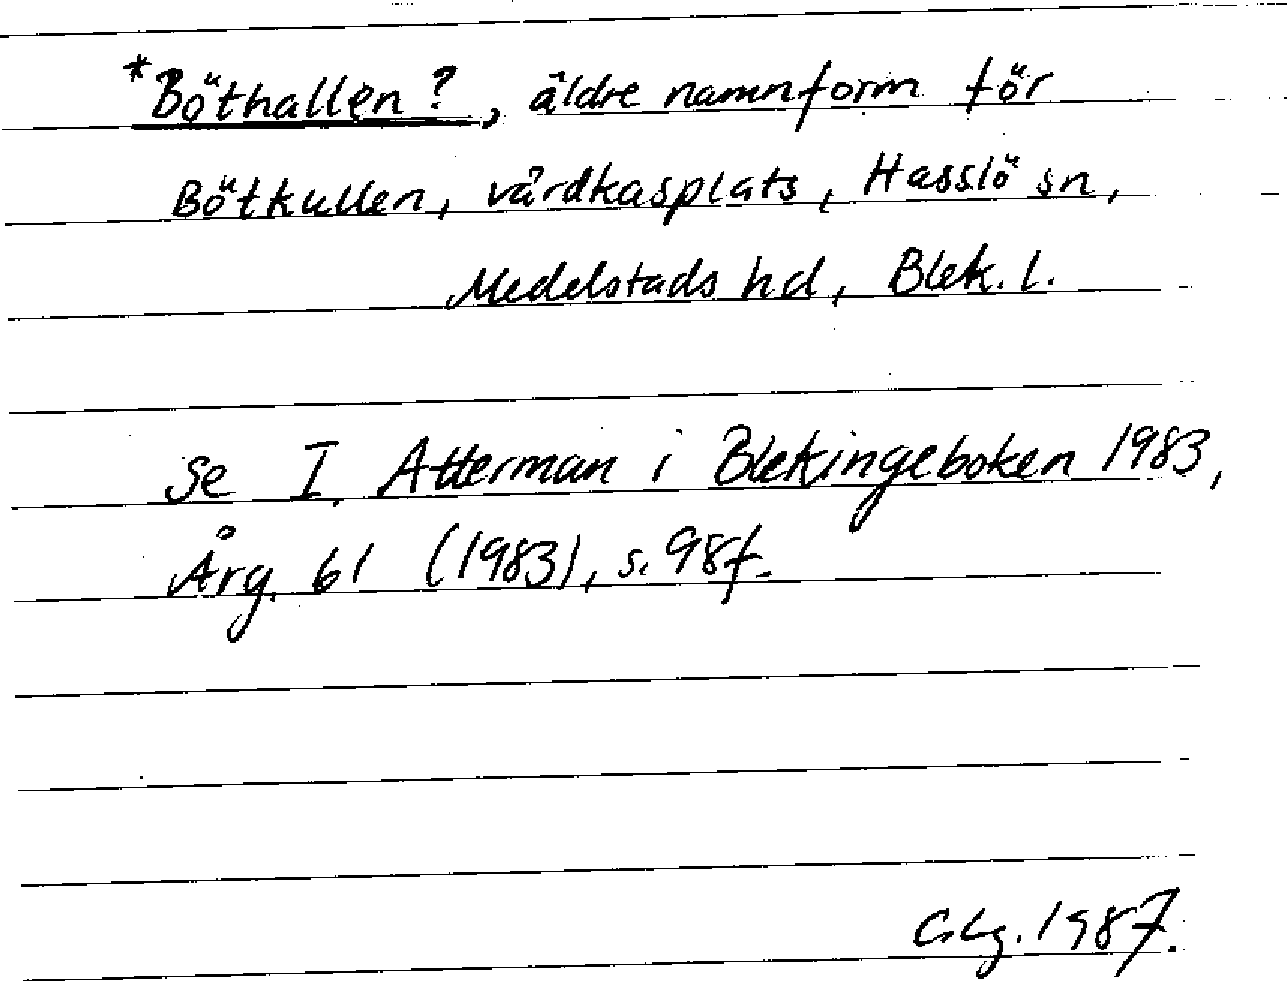 *Böthallen?, äldre namnform för
Bötkullen, vårdkasplats, Hasslö sn,
Medelstads hd, Blek. l.
Se I. Atterman i Blekingeboken 1983,
Årg. 61 (1983), s. 98f.
C.Lg. 1987.